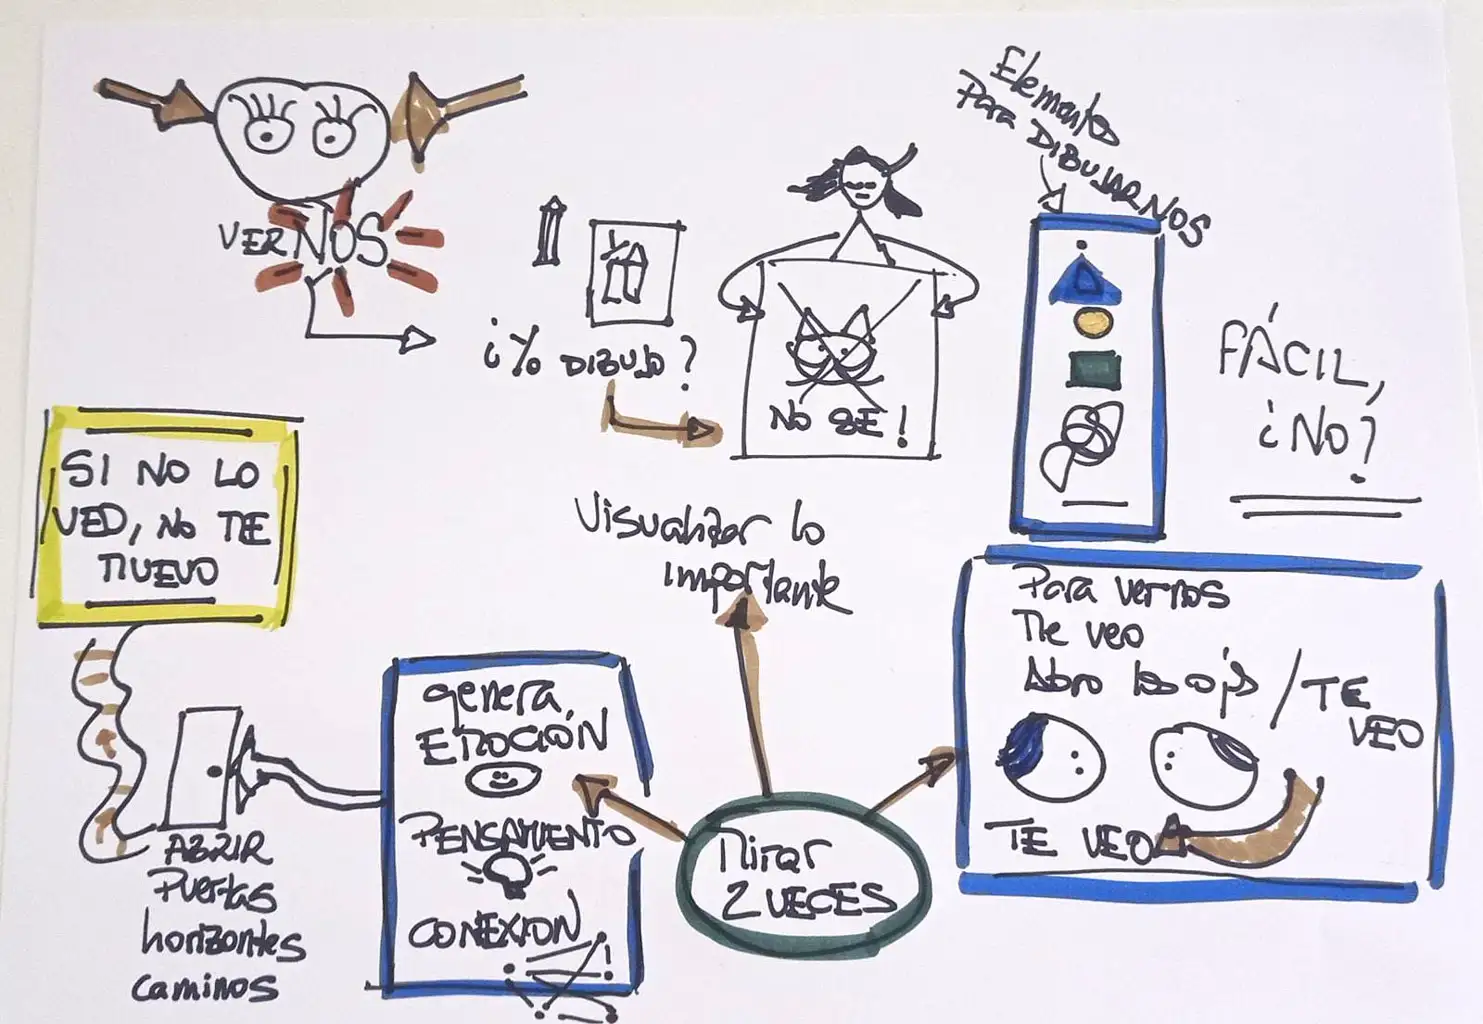 VERNOS
¿Yo DIBUJO?
NO SÉ!
Elementos
Para DIBUJARNOS
FÁCIL,
¿NO?
SI NO LO
VEO, NO ME
MUEVO
Visualizar lo
importante
Para vernos
Me veo
Abro los ojos / TE
VEO
TE VEO
genera
EMOCIÓN
PENSAMIENTO
CONEXION
Mirar
2 VECES
ABRIR
Puertas
horizontes
caminos